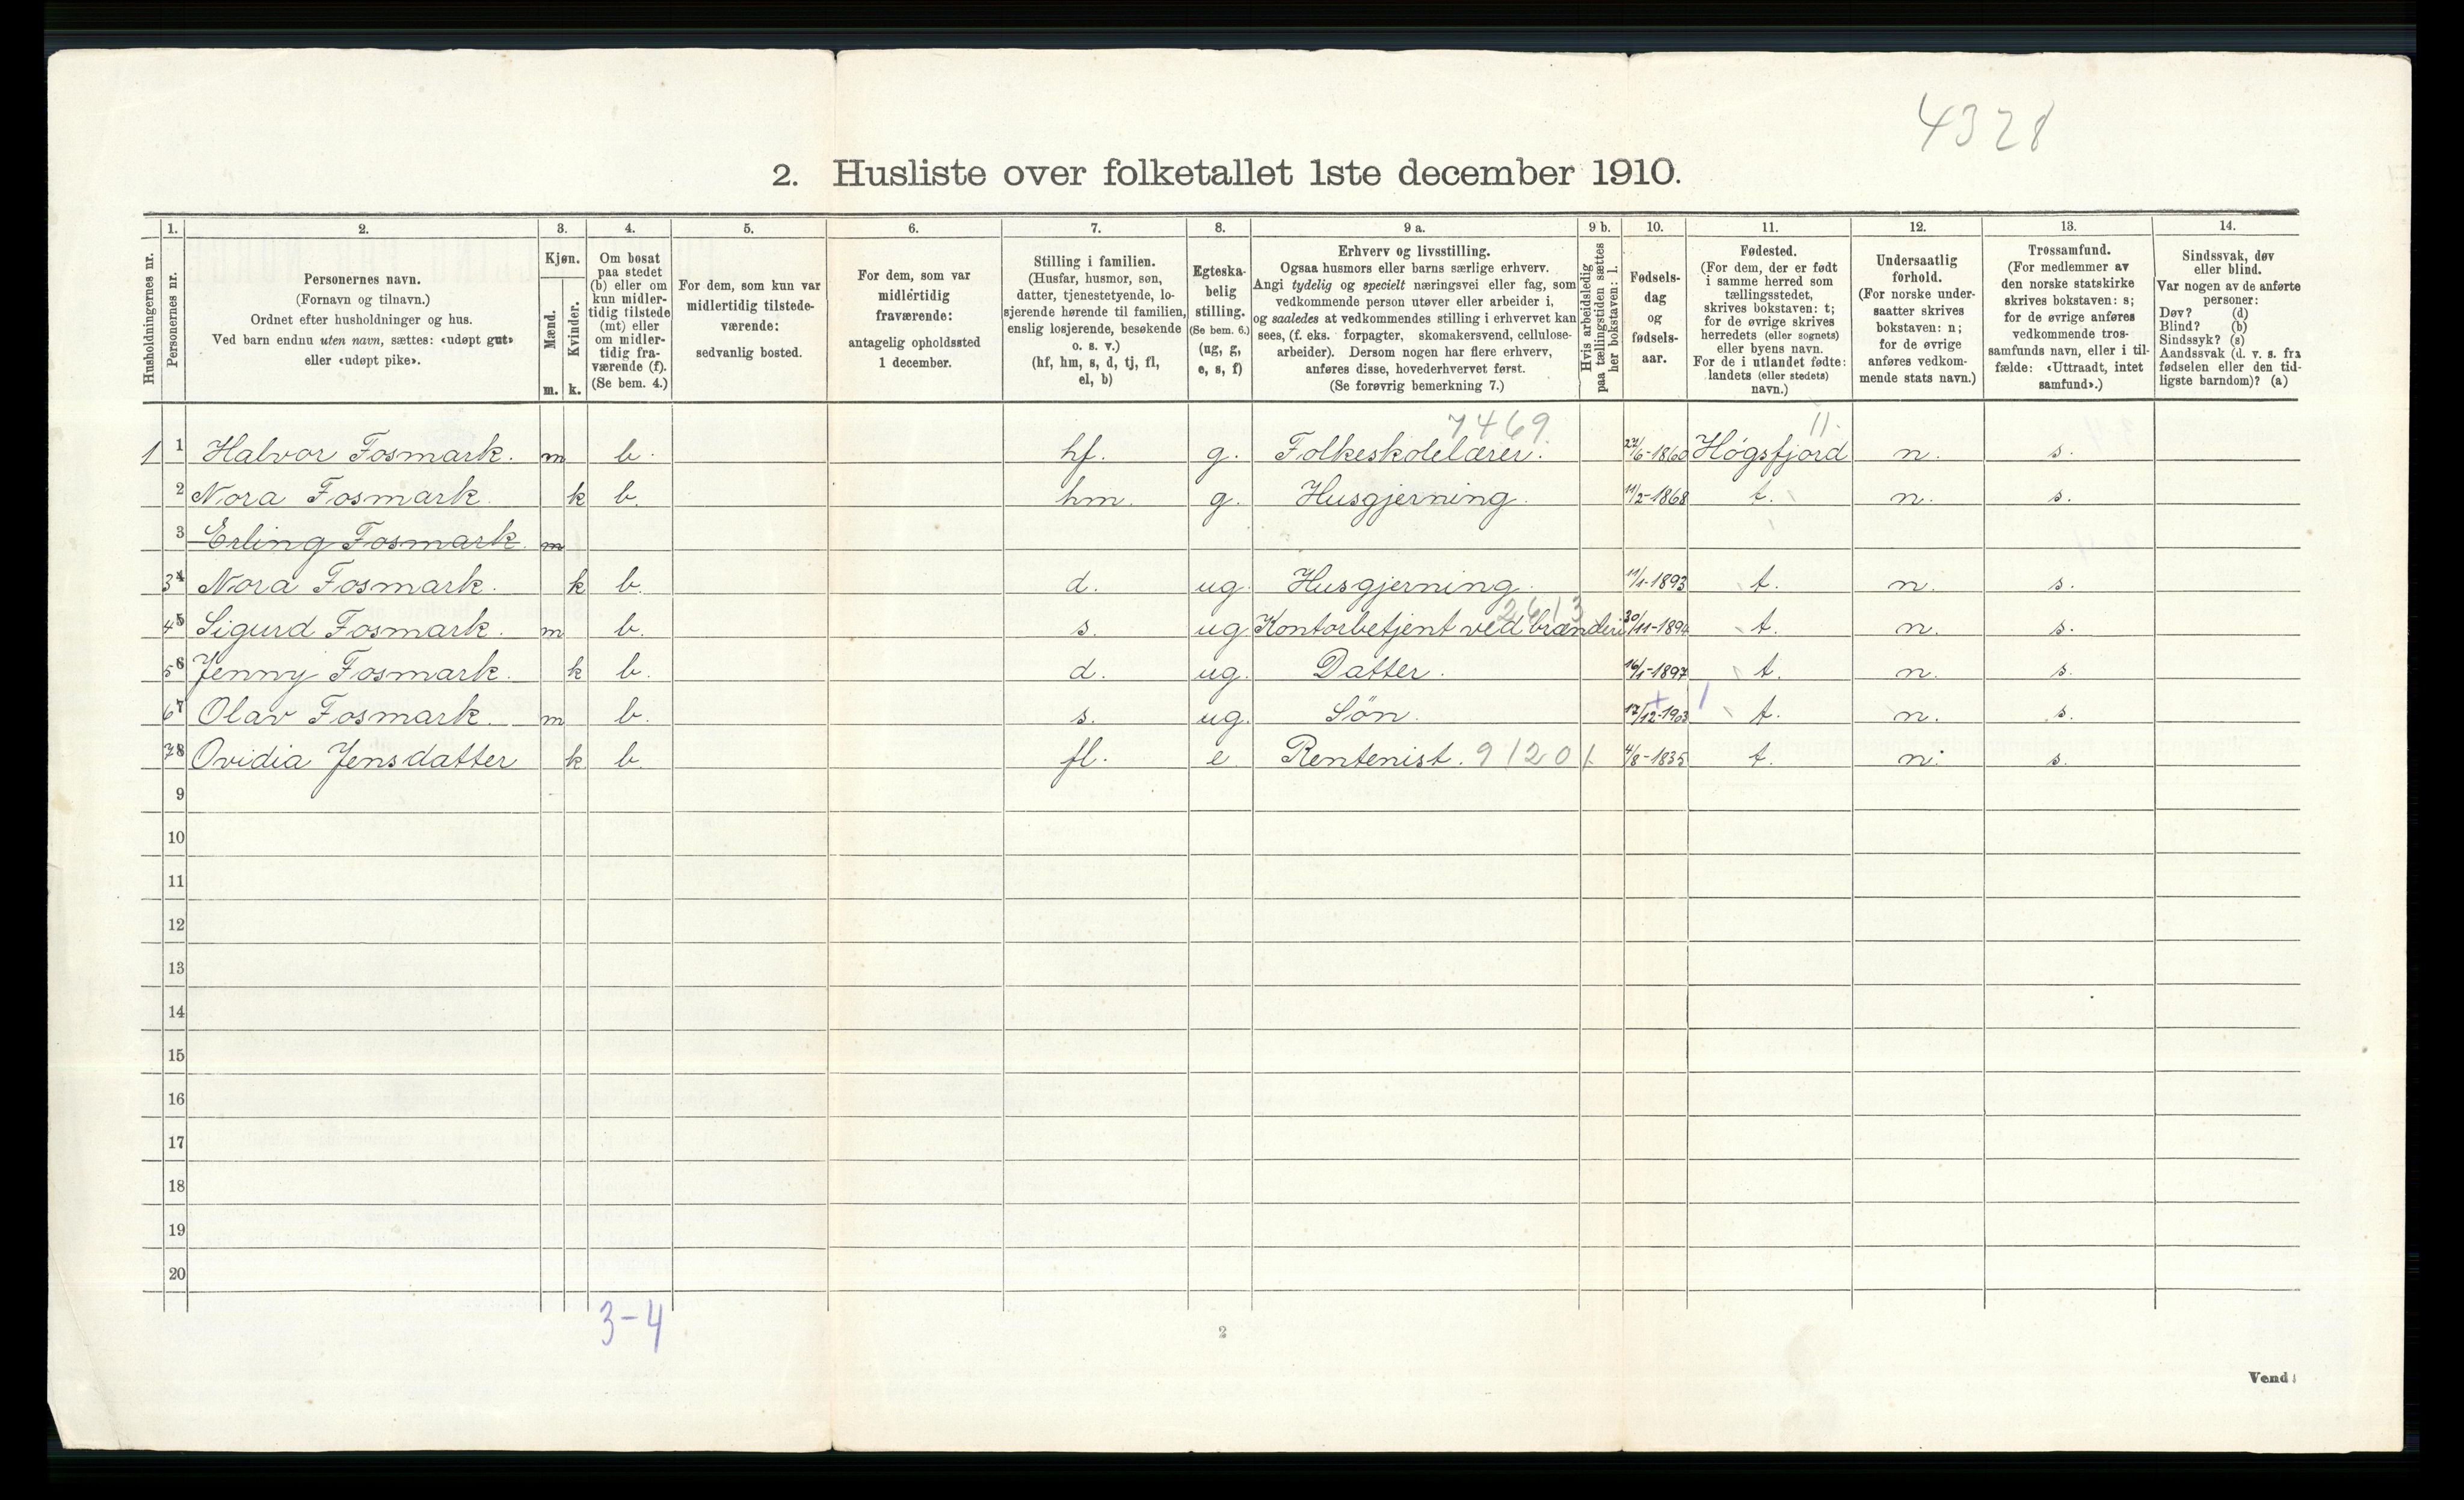 4328
2. Husliste over folketallet 1ste december 1910.
1. 2. 3. 4. 5. 6. 7. 8. 9 a. 9 b. 10. 11. 12. 13. 14.
Husholdningernes nr.
Personernes nr.
Personernes navn.
(Fornavn og tilnavn.)
Ordnet efter husholdninger og hus.
Ved barn endnu uten navn, sættes: «udøpt gut»
eller «udøpt pike».
Kjøn.
Mænd.
m.
Kvinder.
k.
Om bosat
paa stedet
(b) eller om
kun midler-
tidig tilstede
(mt) eller
om midler-
tidig fra-
værende (f).
(Se bem. 4.)
For dem, som kun var
midlertidig tilstede-
værende:
sedvanlig bosted.
For dem, som var
midlertidig
fraværende:
antagelig opholdssted
1 december.
Stilling i familien.
(Husfar, husmor, søn,
datter, tjenestetyende, lo-
sjerende hørende til familien,
enslig losjerende, besøkende
o. s. v.)
(hf, hm, s, d, tj, fl,
el, b)
Egteska-
belig
stilling.
(Se bem. 6.)
(ug, g,
e, s, f)
Erhverv og livsstilling.
Ogsaa husmors eller barns særlige erhverv.
Angi tydelig og specielt næringsvei eller fag, som
vedkommende person utøver eller arbeider i,
og saaledes at vedkommendes stilling i erhvervet kan
sees, (f. eks. forpagter, skomakersvend, cellulose-
arbeider). Dersom nogen har flere erhverv,
anføres disse, hovederhvervet først.
(Se forøvrig bemerkning 7.)
Hvis arbeidsledig
paa tællingstiden sættes
her bokstaven: l.
Fødsels-
dag
og
fødsels-
aar.
Fødested.
(For dem, der er født
i samme herred som
tællingsstedet,
skrives bokstaven: t;
for de øvrige skrives
herredets (eller sognets)
eller byens navn.
For de i utlandet fødte:
landets (eller stedets)
navn.)
Undersaatlig
forhold.
(For norske under-
saatter skrives
bokstaven: n;
for de øvrige
anføres vedkom-
mende stats navn.)
Trossamfund.
(For medlemmer av
den norske statskirke
skrives bokstaven: s;
for de øvrige anføres
vedkommende tros-
samfunds navn, eller i til-
fælde: «Uttraadt, intet
samfund».)
Sindssvak, døv
eller blind.
Var nogen av de anførte
personer:
Døv? (d)
Blind? (b)
Sindssyk? (s)
Aandssvak (d. v. s. fra
fødselen eller den tid-
ligste barndom)? (a)
7469. 11.
1 1 Halvor Fosmark. m b. hf. g. Folkeskolelærer. 27/6-1860 Høgsfjord n. s.
2 Nora Fosmark. k b. hm. g. Husgjerning. 11/2-1868 t. n. s.
3 Erling Fosmark. m
3 4 Nora Fosmark. k b. d. ug. Husgjerning. 11/1-1893 t. n. s.
2613
4 5 Sigurd Fosmark. m b. s. ug Kontorbetjent ved brænderi 30/11-1894 t. n. s.
5 6 Jenny Fosmark. k b. d. ug. Datter. 16/1-1897 t. n. s.
6 7 Olav Fosmark. m b. s. ug. Søn. 17/12-1903 t. n. s.
7 8 Ovidia Jensdatter k b. fl. e Rentenist. 91201. 4/8-1835 t. n. s.
9
10
11
12
13
14
15
16
17
18
19
20
3-4
2
Vend!